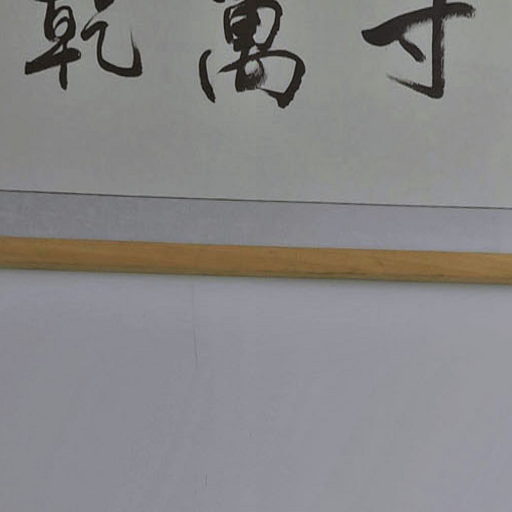 寸
萬
乾